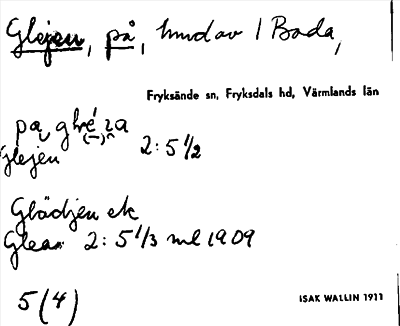 Glejen, på, hmd av / Bada,
Fryksände sn, Fryksdals hd, Värmlands län
på
(–)
glejen 2: 5 1/2
Glädjen ek
Glean 2: 5 1/3 ml 1909
5 (4)
ISAK WALLIN 1911